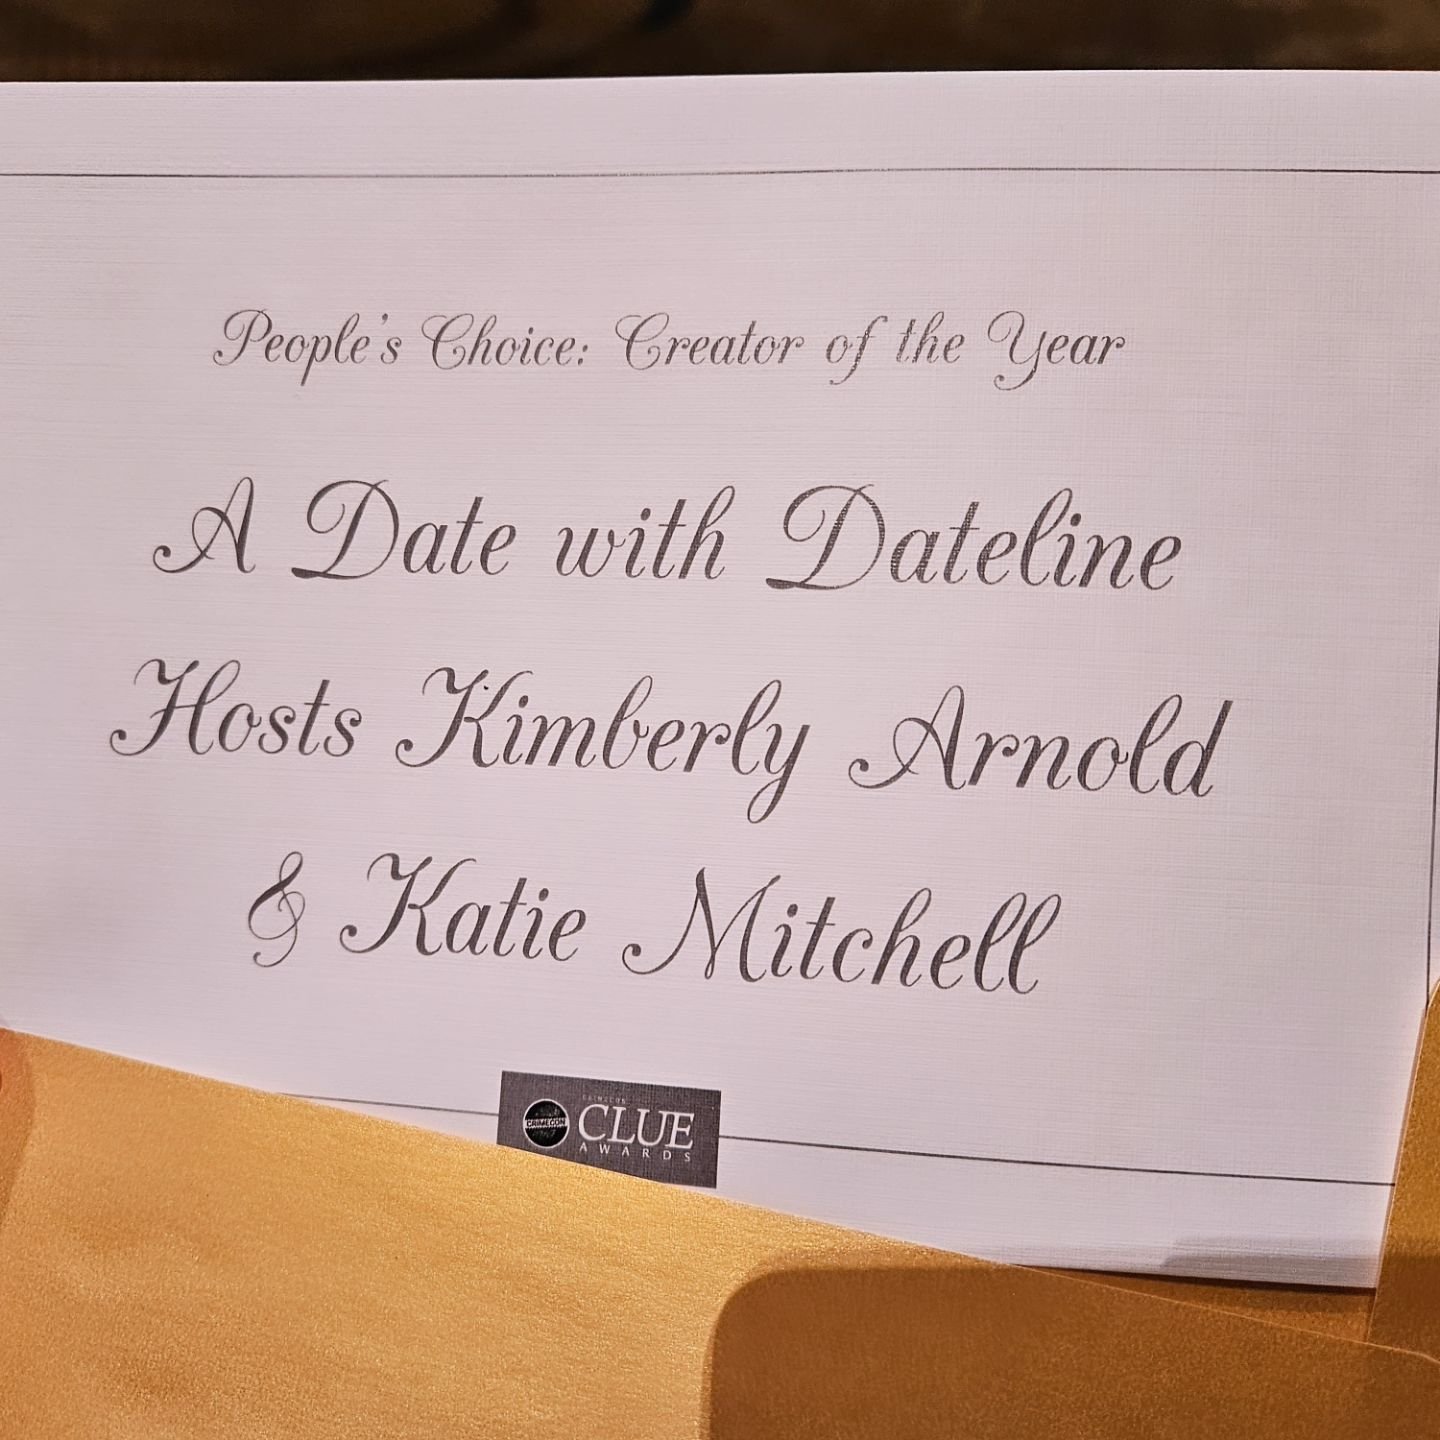 People's Choice: Creator of the Year
A Date with Dateline
Hosts Kimberly Arnold
& Katie Mitchell
CRIMECON
CRIMECON
CLUE
AWARDS